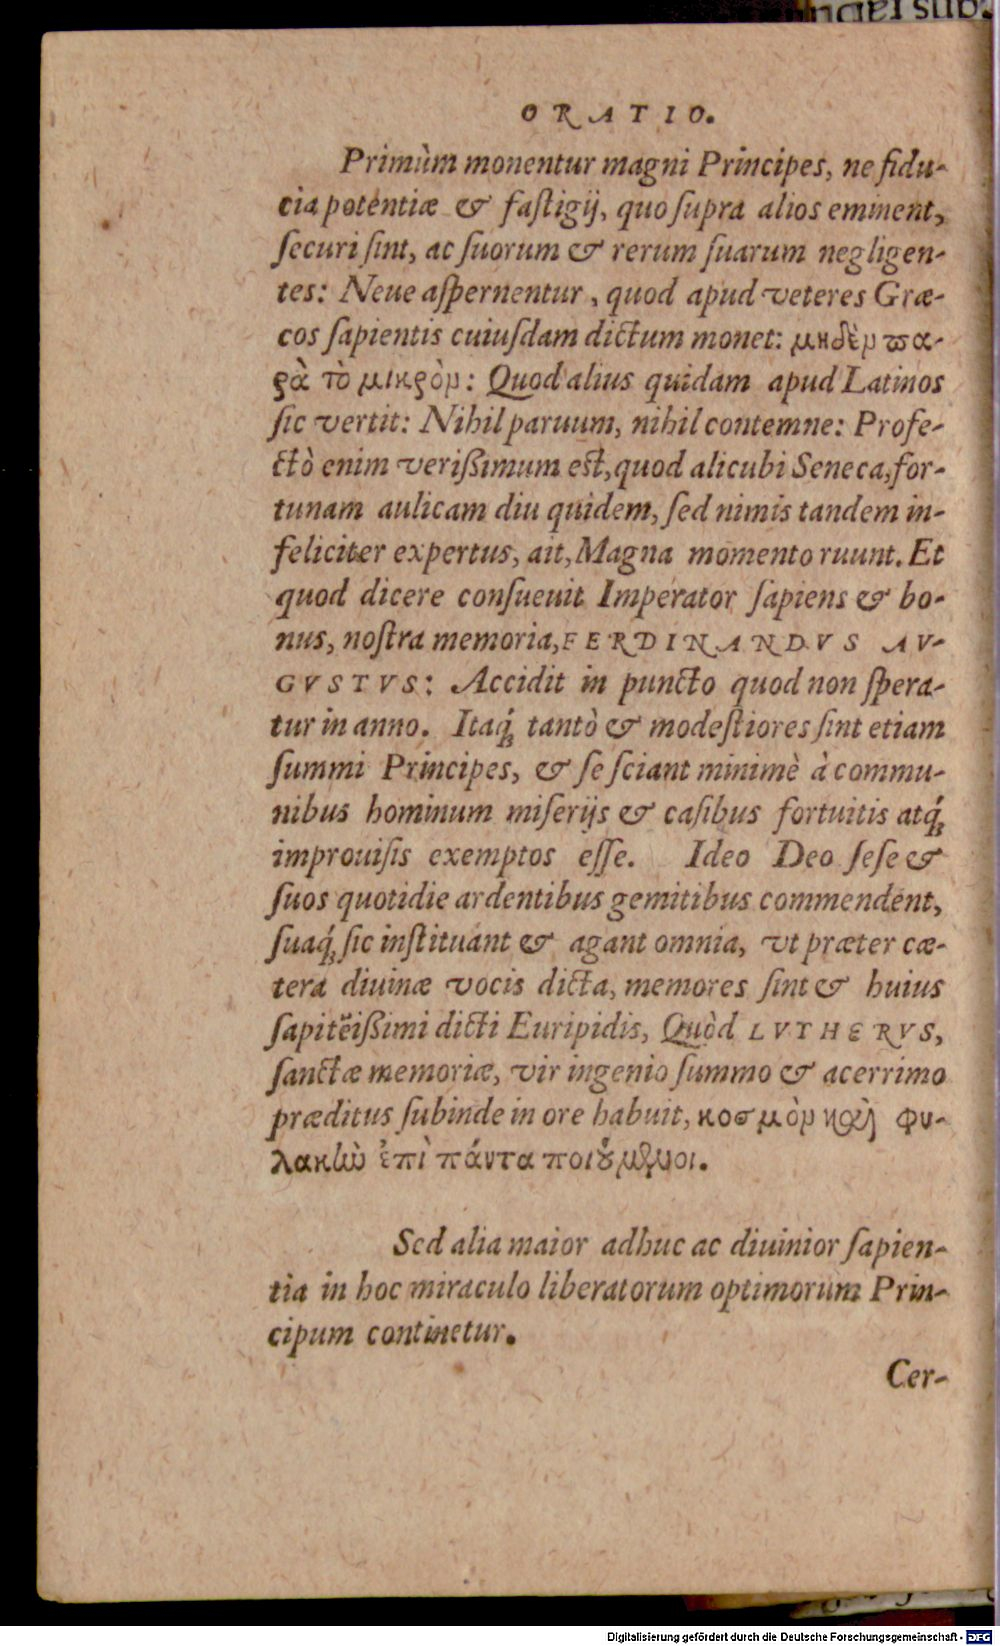 ORATIO.
Primùm monentur magni Principes, ne fidu-
cia potentiæ & faſtigij, quo ſupra alios eminent,
ſecuri ſint, ac ſuorum & rerum ſuarum negligen-
tes: Neue aſpernentur, quod apud veteres Græ-
cos ſapientis cuiuſdam dictum monet: μηδὲν πα-
ρὰ τὸ μικρὸν: Quod alius quidam apud Latinos
ſic vertit: Nihil paruum, nihil contemne: Profe-
ctò enim verißimum eſt, quod alicubi Seneca, for-
tunam aulicam diu quidem, ſed nimis tandem in-
feliciter expertus, ait, Magna momento ruunt. Et
quod dicere conſueuit Imperator ſapiens & bo-
nus, noſtra memoria, FERDINANDVS AV-
GVSTVS: Accidit in puncto quod non ſpera-
tur in anno. Itaq́; tantò & modeſtiores ſint etiam
ſummi Principes, & ſe ſciant minimè à commu-
nibus hominum miſerijs & caſibus fortuitis atq́;
improuiſis exemptos eſſe. Ideo Deo ſeſe &
ſuos quotidie ardentibus gemitibus commendent,
ſuaq́; ſic inſtituant & agant omnia, vt præter cæ-
tera diuinæ vocis dicta, memores ſint & huius
ſapitẽißimi dicti Euripidis, Quòd LVTHERVS,
ſanctæ memoriæ, vir ingenio ſummo & acerrimo
præditus ſubinde in ore habuit, κοσμὸν καὶ φυ-
λακὼ ἐπὶ πάντα ποιούμενοι.
Sed alia maior adhuc ac diuinior ſapien-
tia in hoc miraculo liberatorum optimorum Prin-
cipum continetur.
Cer-
Digitalisierung gefördert durch die Deutsche Forschungsgemeinschaft - DFG